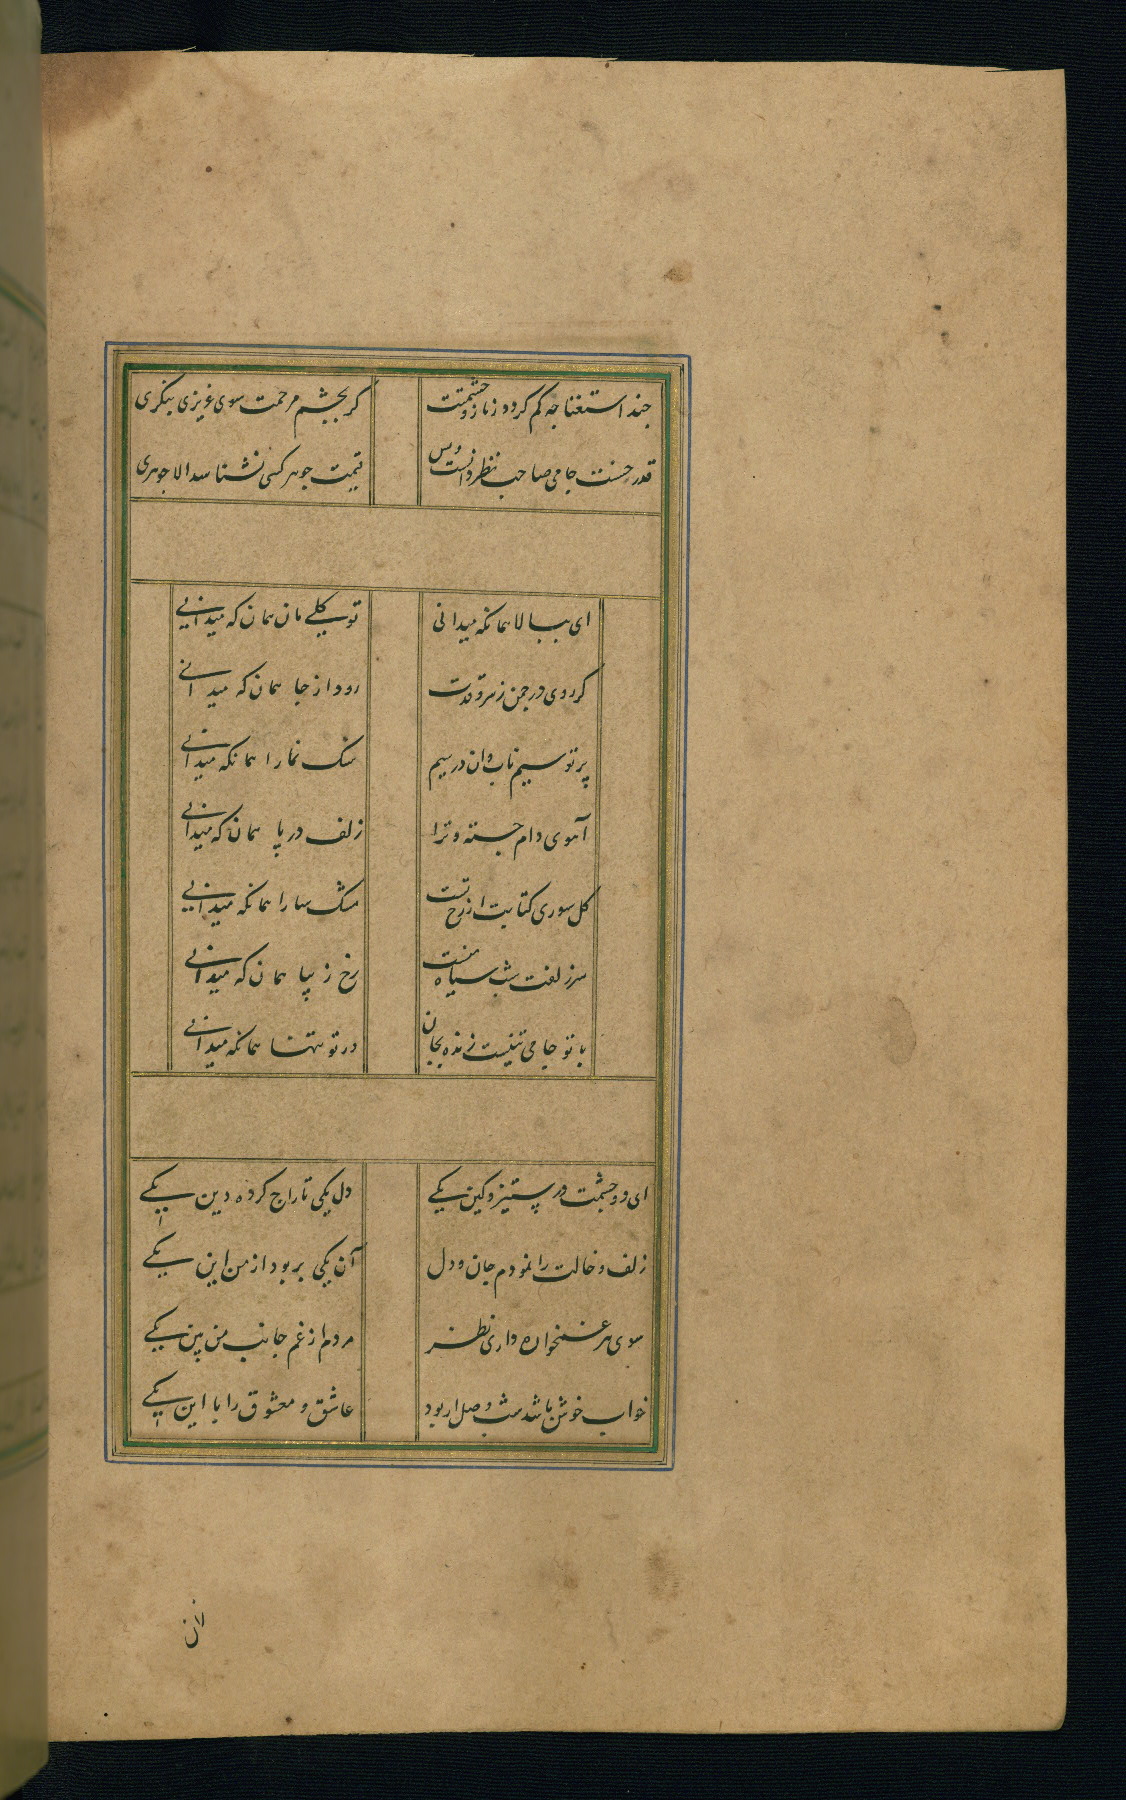 چند استغنا چه کم کردد ز ناز و حشمتت کر بچشم مرحمت سوی غریزی بنکری
قدر حسنت جامی صاحب نظر دانست و بس قیمت جوهر کسی نشناسد الا جوهری
ای ببالا همانکه میدانی تو بکلی مان همان که میدانی
کر روی در چمن ز سرو قدت رود از جا همان که میدانی
پرتو سیم ناب وان در سیم سنک خارا همانکه میدانی
آهوی دام جسته و ترا زلف در پا همان که میدانی
کل سوری کنایت از رخ تست مشک سارا همانکه میدانی
سر زلفت شب سیاه منست رخ زیبا همان که میدانی
با تو جامی نیست زنده بجان در تو تنها همانکه میدانی
ای دو چشمت در ستیز و کین یکی دل یکی تاراج کرده دین یکی
زلف و خالت را نمودم جان و دل آن یکی بربود از من این یکی
سوی هر غمخواره داری نظر مردم از غم جانب من بین یکی
خواب خوش باشد شب وصل ار بود عاشق و معشوق را بالین یکی